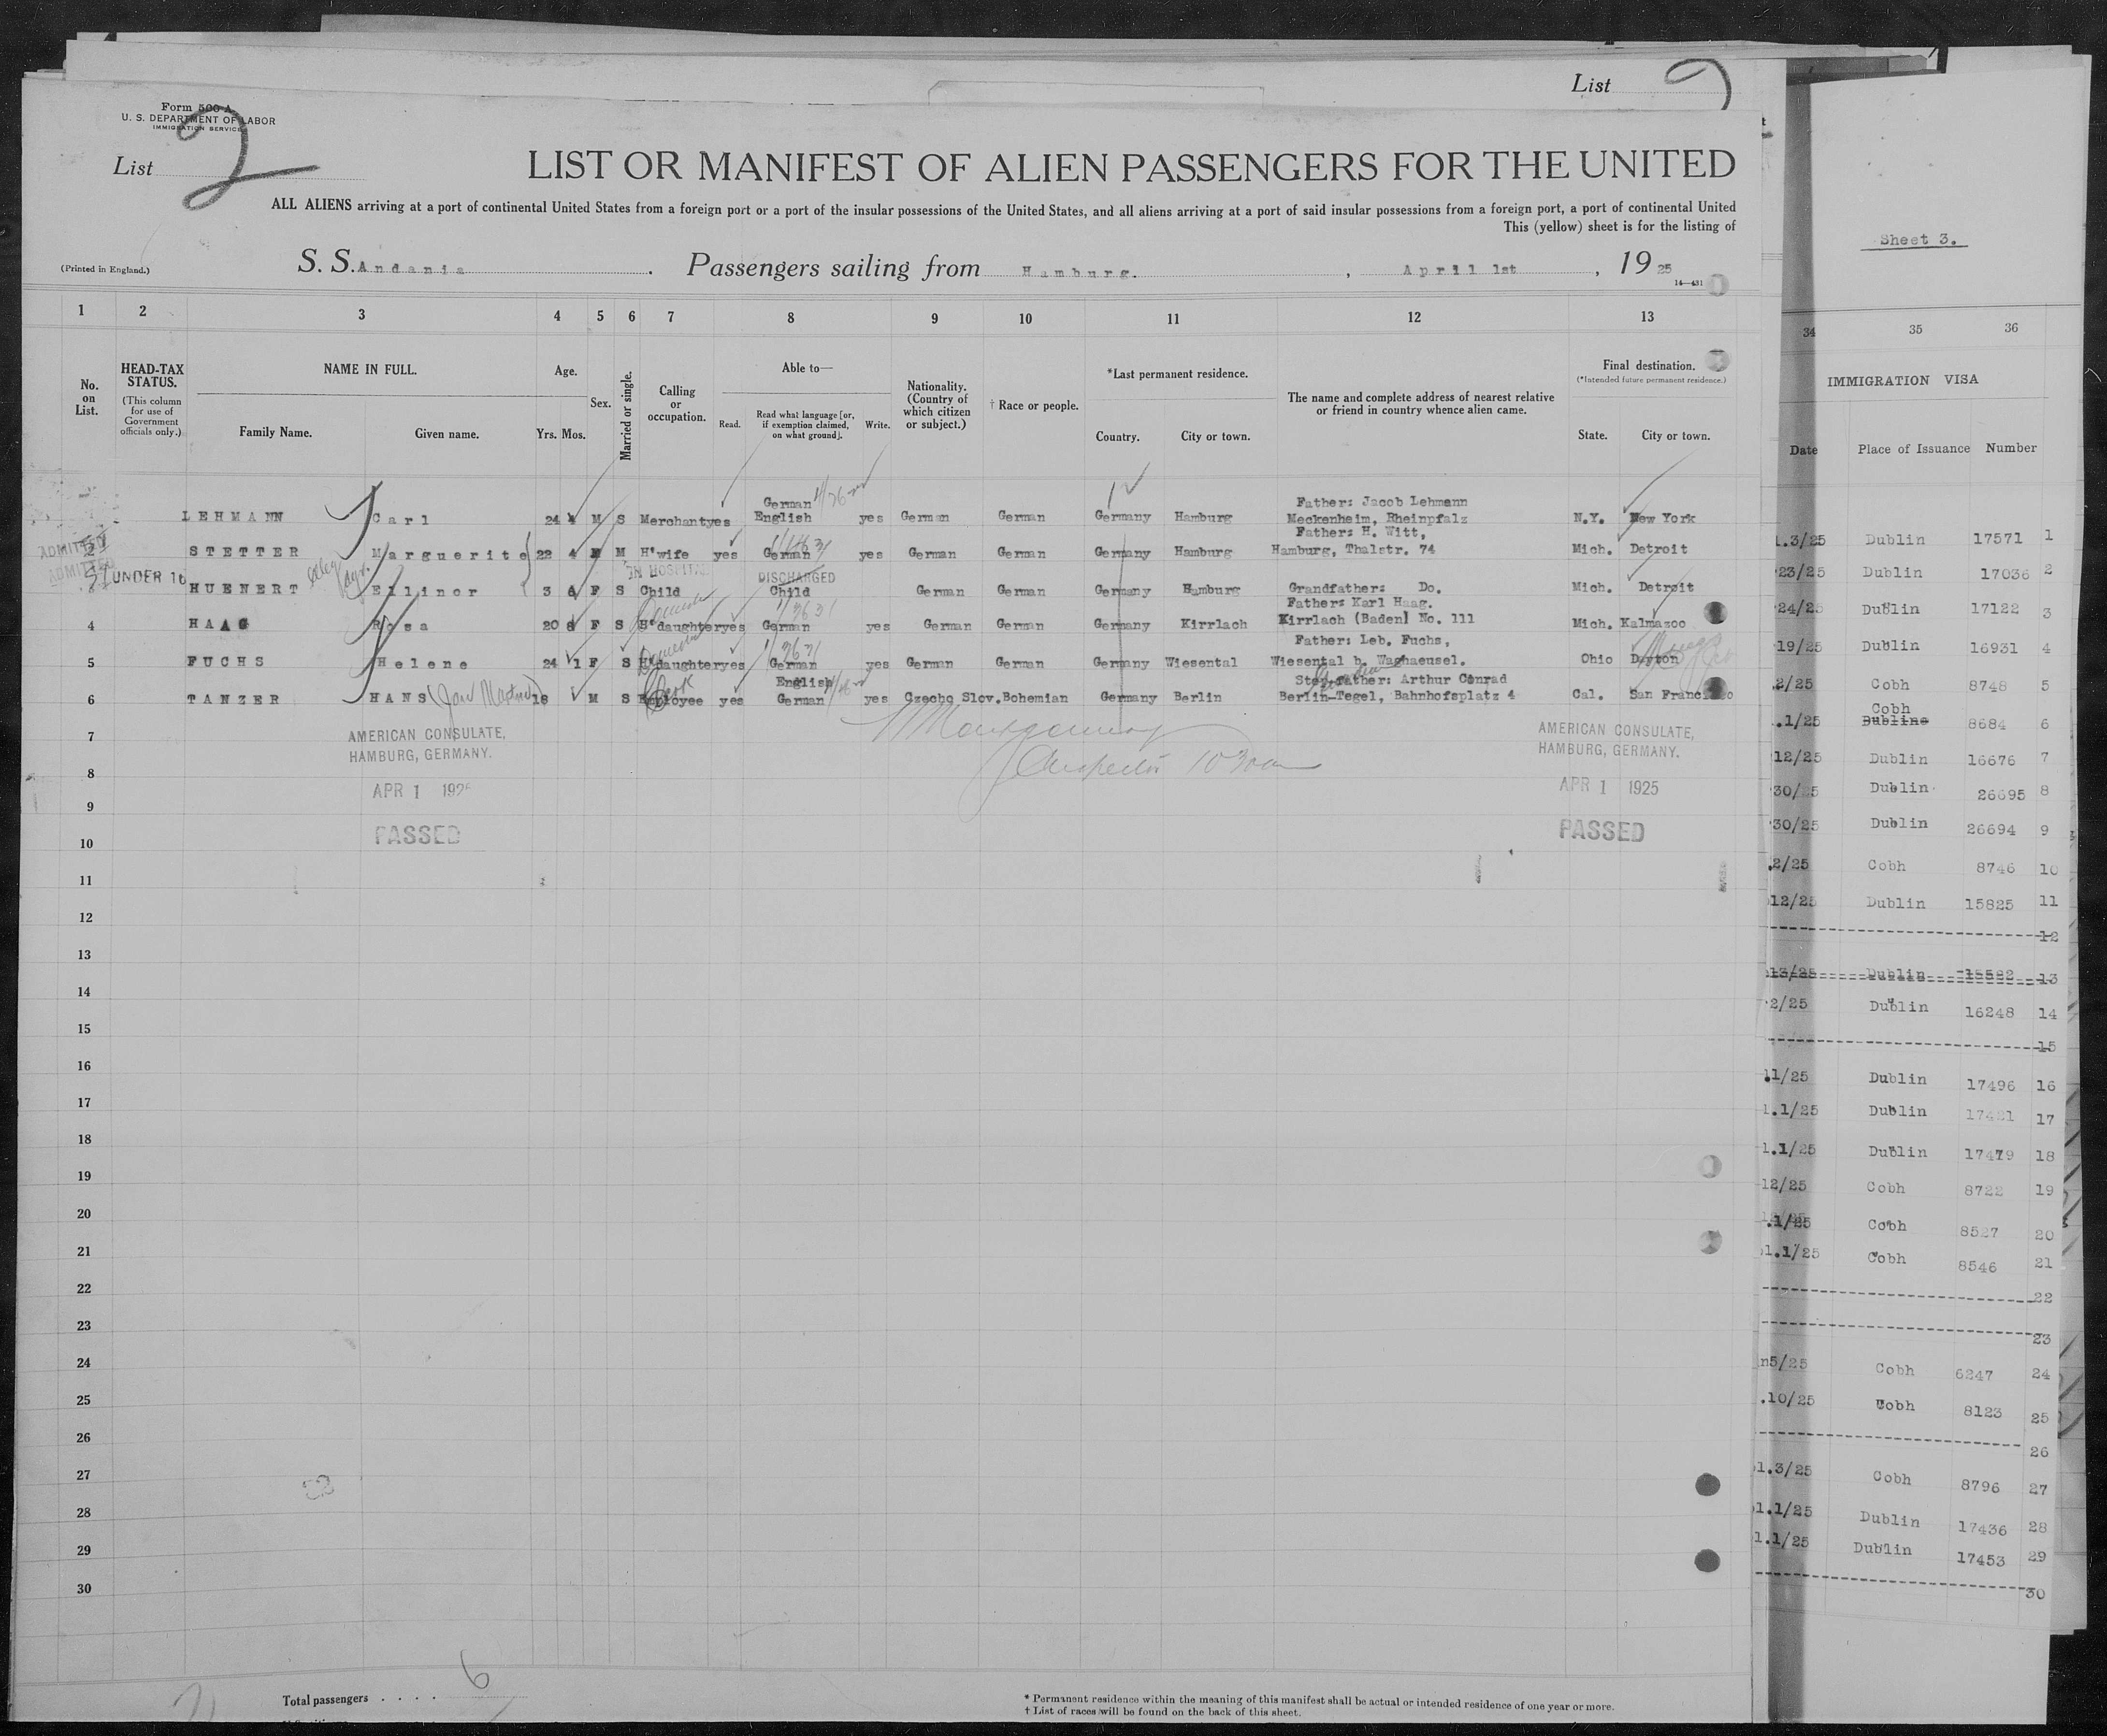 List
Form 500-A
U. S. DEPARTMENT OF LABOR
IMMIGRATION SERVICE
List 2
LIST OR MANIFEST OF ALIEN PASSENGERS FOR THE UNITED
ALL ALIENS arriving at a port of continental United States from a foreign port or a port of the insular possessions of the United States, and all aliens arriving at a port of said insular possessions from a foreign port, a port of continental United
This (yellow) sheet is for the listing of
(Printed in England.)
S. S. Andania. Passengers sailing from Hamburg., April 1st, 1925
14—431
1 2 3 4 5 6 7 8 9 10 11 12 13
No. on List.
HEAD-TAX STATUS.
(This column for use of Government officials only.)
NAME IN FULL.
Family Name. Given name.
Age.
Yrs. Mos.
Sex.
Married or single.
Calling or occupation.
Able to—
Read. Read what language [or, if exemption claimed, on what ground]. Write.
Nationality. (Country of which citizen or subject.)
† Race or people.
*Last permanent residence.
Country. City or town.
The name and complete address of nearest relative or friend in country whence alien came.
Final destination.
(*Intended future permanent residence.)
State. City or town.
German Father: Jacob Lehmann
LEHMANN Carl 24 M S Merchant yes English yes German German Germany Hamburg Meckenheim, Rheinpfalz N.Y. New York
Father: H. Witt,
ADMITTED STETTER Marguerite 22 4 M H'wife yes German yes German German Germany Hamburg Hamburg, Thalstr. 74 Mich. Detroit
ADMITTED IN HOSPITAL DISCHARGED
UNDER 16 HUENERT Ellinor 3 F S Child Child German German Germany Hamburg Grandfather: Do. Mich. Detroit
Father: Karl Haag.
4 HAAG Rosa 20 F S H'daughter yes German yes German German Germany Kirrlach Kirrlach (Baden) No. 111 Mich. Kalmazoo
Father: Leb. Fuchs,
5 FUCHS Helene 24 1 F S H'daughter yes German yes German German Germany Wiesental Wiesental b. Waghaeusel. Ohio Dayton
English Stepfather: Arthur Conrad
6 TANZER HANS 18 M S Employee yes German yes Czecho Slov. Bohemian Germany Berlin Berlin-Tegel, Bahnhofsplatz 4 Cal. San Francisco
Clerk
Montgomery
Inspector
7
AMERICAN CONSULATE,
HAMBURG, GERMANY.
APR 1 192
PASSED
AMERICAN CONSULATE,
HAMBURG, GERMANY.
APR 1 1925
PASSED
8
9
10
11
12
13
14
15
16
17
18
19
20
21
22
23
24
25
26
27
28
29
30
Total passengers . . . . 6
* Permanent residence within the meaning of this manifest shall be actual or intended residence of one year or more.
† List of races will be found on the back of this sheet.
Sheet 3.
34 35 36
IMMIGRATION VISA
Date Place of Issuance Number
.3/25 Dublin 17571 1
23/25 Dublin 17036 2
24/25 Dublin 17122 3
19/25 Dublin 16931 4
2/25 Cobh 8748 5
Cobh
.1/25 Dublin 8684 6
12/25 Dublin 16676 7
30/25 Dublin 26695 8
30/25 Dublin 26694 9
2/25 Cobh 8746 10
12/25 Dublin 15825 11
12
13/25 Dublin 15522 13
2/25 Dublin 16248 14
15
11/25 Dublin 17496 16
1.1/25 Dublin 17421 17
1.1/25 Dublin 17479 18
12/25 Cobh 8722 19
.1/25 Cobh 8527 20
1.1/25 Cobh 8546 21
22
23
n5/25 Cobh 6247 24
.10/25 Cobh 8123 25
26
1.3/25 Cobh 8796 27
1.1/25 Dublin 17436 28
1.1/25 Dublin 17453 29
30